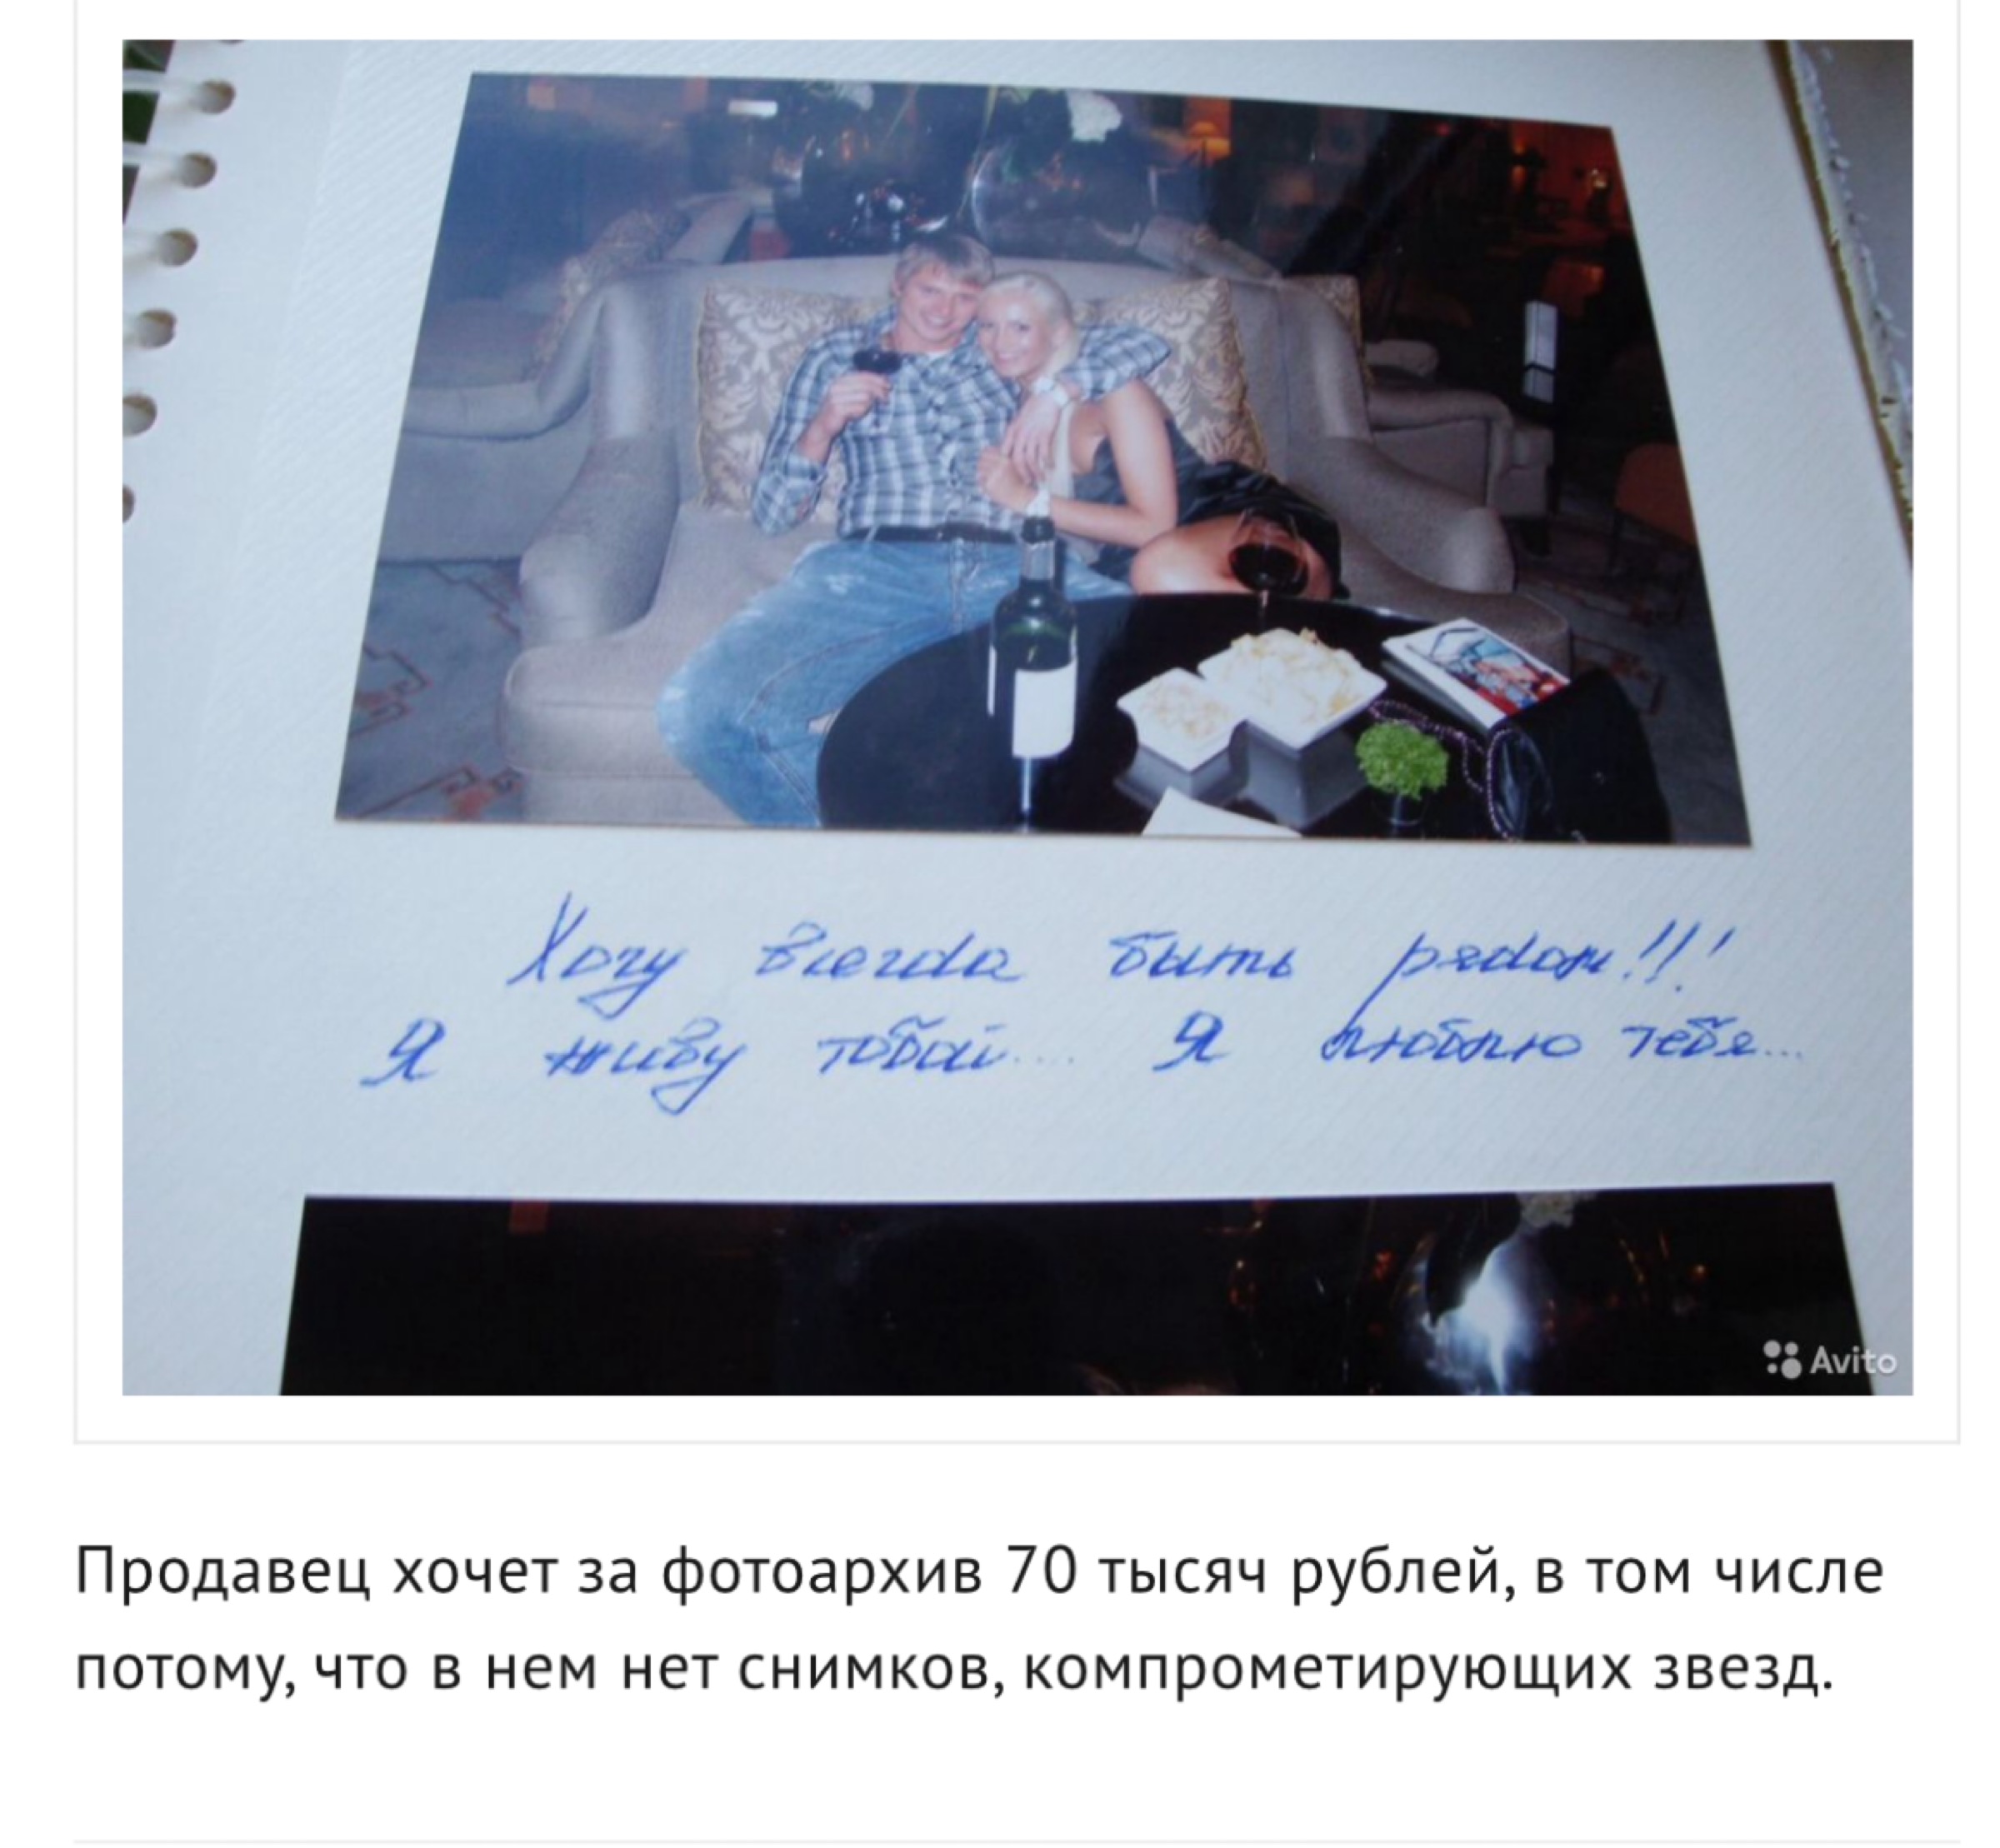 Хочу всегда быть рядом!!!
Я живу тобой.... Я люблю тебя...
Avito
Продавец хочет за фотоархив 70 тысяч рублей, в том числе
потому, что в нем нет снимков, компрометирующих звезд.